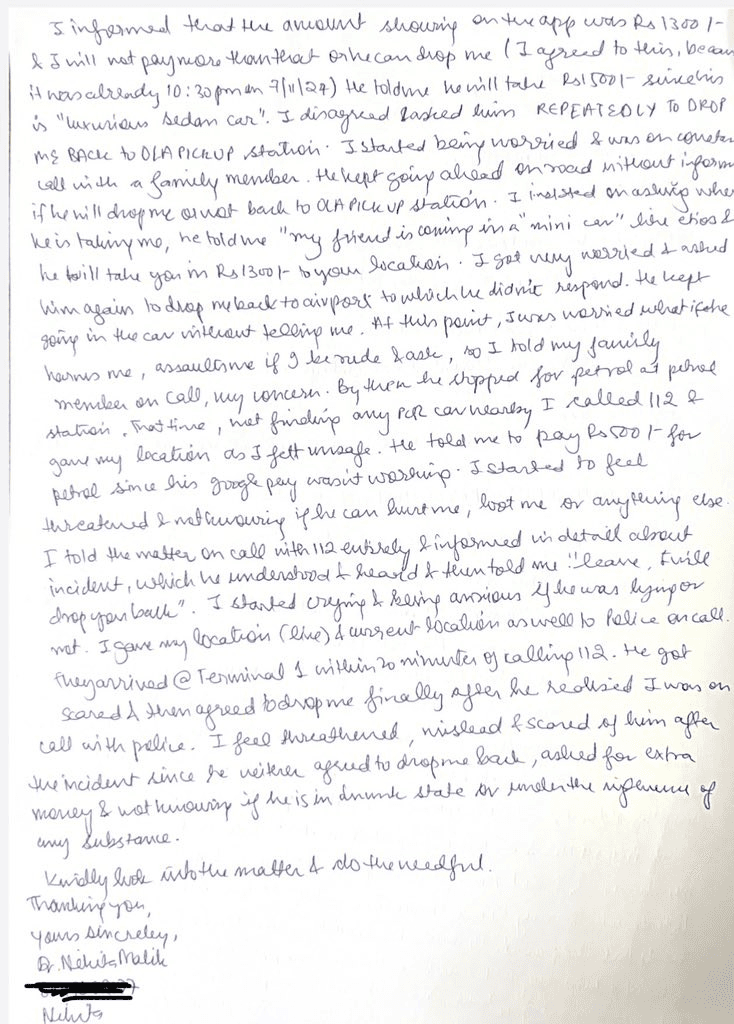 I informed that the amount showing on the app was Rs 1300/-
& I will not pay more than that or he can drop me (I agreed to this, becau
it was already 10:30pm on 7/11/24) He told me he will take Rs1500/- since his
is "luxurious sedan car". I disagreed & asked him REPEATEDLY TO DROP
ME BACK to OLA PICKUP station. I started being worried & was on constan
call with a family member. He kept going ahead on road without inform
if he will drop me or not back to OLA PICK UP station. I insisted on asking wher
he is taking me, he told me "my friend is coming in a "mini car" like etios &
he will take you in Rs 1300/- to your location. I got very worried & asked
him again to drop me back to airport to which he didn't respond. He kept
going in the car without telling me. At this point, I was worried what if he
harms me, assaults me if I be rude & ask, so I told my family
member on call, my concern. By then he stopped for petrol at petrol
station. That time, not finding any PCR car nearby I called 112 &
gave my location as I felt unsafe. He told me to pay Rs 500/- for
petrol since his google pay wasn't working. I started to feel
threatened & not knowing if he can hurt me, loot me or anything else.
I told the matter on call with 112 entirely & informed in detail about
incident, which he understood & heard & then told me "leave, I will
drop you back". I started crying & being anxious if he was lying or
not. I gave my location (live) & current location as well to Police on call.
They arrived @ Terminal 1 within 20 minutes of calling 112. He got
scared & then agreed to drop me finally after he realised I was on
call with police. I feel threathened, mislead & scared of him after
the incident since he neither agreed to drop me back, asked for extra
money & not knowing if he is in drunk state or under the influence of
any substance.
Kindly look into the matter & do the needful.
Thanking you,
yours sincreley,
Dr. Nehita Malik